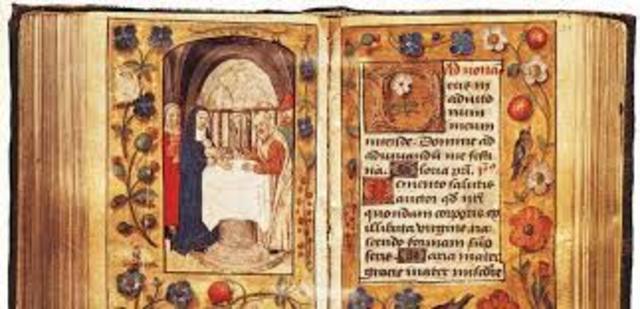 Ad nonā
eus in
adiuto
rium
meum
intende. Domine ad
adiuuandū me festi
na. Gloria pri.
Memento salutis
auctor qd nri
quondam corporis ex
illibata virgine na
scendo formam sūp
seris. Maria mater
gracie mater